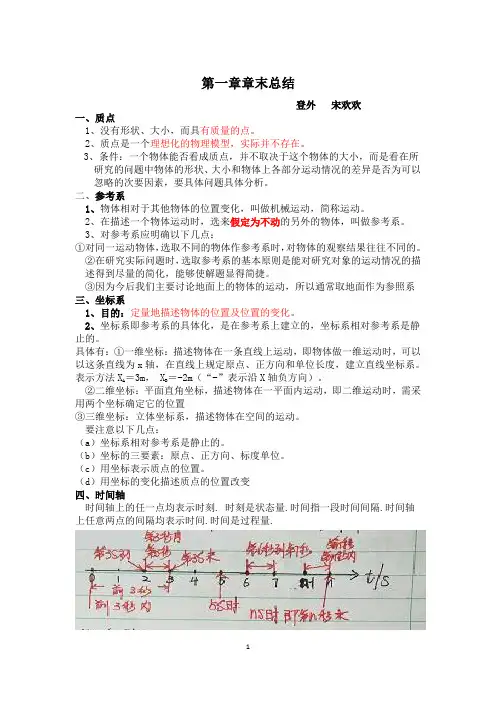 第一章章末总结
登外 宋欢欢
一、质点
1、没有形状、大小，而具有质量的点。
2、质点是一个理想化的物理模型，实际并不存在。
3、条件：一个物体能否看成质点，并不取决于这个物体的大小，而是看在所
研究的问题中物体的形状、大小和物体上各部分运动情况的差异是否为可以
忽略的次要因素，要具体问题具体分析。
二、参考系
1、物体相对于其他物体的位置变化，叫做机械运动，简称运动。
2、在描述一个物体运动时，选来假定为不动的另外的物体，叫做参考系。
3、对参考系应明确以下几点：
①对同一运动物体，选取不同的物体作参考系时，对物体的观察结果往往不同的。
②在研究实际问题时，选取参考系的基本原则是能对研究对象的运动情况的描
述得到尽量的简化，能够使解题显得简捷。
③因为今后我们主要讨论地面上的物体的运动，所以通常取地面作为参照系
三、坐标系
1、目的：定量地描述物体的位置及位置的变化。
2、坐标系即参考系的具体化，是在参考系上建立的，坐标系相对参考系是静
止的。
具体有：①一维坐标：描述物体在一条直线上运动，即物体做一维运动时，可以
以这条直线为x轴，在直线上规定原点、正方向和单位长度，建立直线坐标系。
表示方法 X₁＝3m， X₂＝-2m（“-”表示沿X轴负方向）。
②二维坐标：平面直角坐标，描述物体在一平面内运动，即二维运动时，需采
用两个坐标确定它的位置
③三维坐标：立体坐标系，描述物体在空间的运动。
要注意以下几点：
（a）坐标系相对参考系是静止的。
（b）坐标的三要素：原点、正方向、标度单位。
（c）用坐标表示质点的位置。
（d）用坐标的变化描述质点的位置改变
四、时间轴
时间轴上的任一点均表示时刻. 时刻是状态量.时间指一段时间间隔.时间轴
上任意两点的间隔均表示时间.时间是过程量.
第3s初 第3s末
0 1 2 3 4 5 6 7 n-1 n t/s
前3秒
前3秒内 5s时 ns时即第n秒末
1